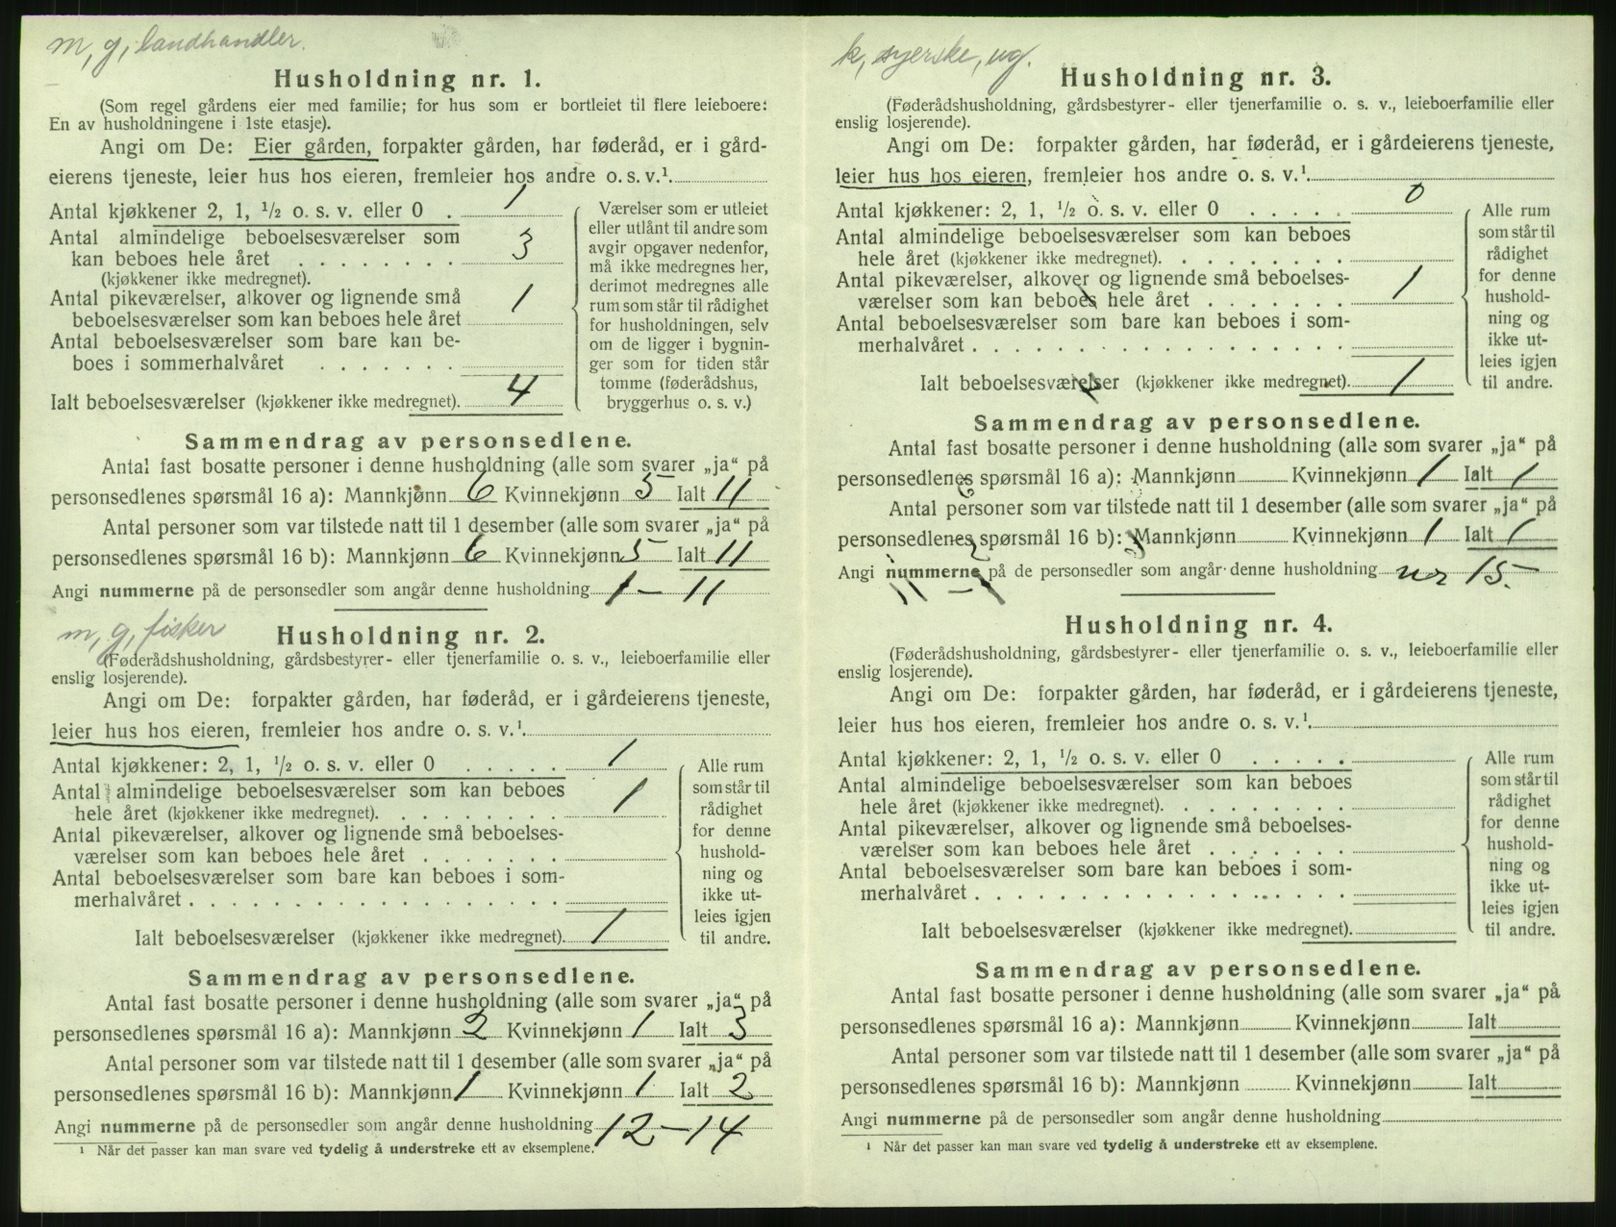 m, g, landhandler.
Husholdning nr. 1.
(Som regel gårdens eier med familie; for hus som er bortleiet til flere leieboere:
En av husholdningene i 1ste etasje).
Angi om De: Eier gården, forpakter gården, har føderåd, er i gård-
eierens tjeneste, leier hus hos eieren, fremleier hos andre o. s. v.¹
Antal kjøkkener 2, 1, ½ o. s. v. eller 0 . 1
Antal almindelige beboelsesværelser som
kan beboes hele året . . . . . . . . 3
(kjøkkener ikke medregnet).
Antal pikeværelser, alkover og lignende små
beboelsesværelser som kan beboes hele året 1
Antal beboelsesværelser som bare kan be-
boes i sommerhalvåret . . . . . . .
Ialt beboelsesværelser (kjøkkener ikke medregnet). 4
Værelser som er utleiet
eller utlånt til andre som
avgir opgaver nedenfor,
må ikke medregnes her,
derimot medregnes alle
rum som står til rådighet
for husholdningen, selv
om de ligger i bygnin-
ger som for tiden står
tomme (føderådshus,
bryggerhus o. s. v.)
Sammendrag av personsedlene.
Antal fast bosatte personer i denne husholdning (alle som svarer „ja“ på
personsedlenes spørsmål 16 a): Mannkjønn 6 Kvinnekjønn 5 Ialt 11
Antal personer som var tilstede natt til 1 desember (alle som svarer „ja“ på
personsedlenes spørsmål 16 b): Mannkjønn 6 Kvinnekjønn 5 Ialt 11
Angi nummerne på de personsedler som angår denne husholdning 1 – 11
m, g, fisker
Husholdning nr. 2.
(Føderådshusholdning, gårdsbestyrer- eller tjenerfamilie o. s. v., leieboerfamilie eller
enslig losjerende).
Angi om De: forpakter gården, har føderåd, er i gårdeierens tjeneste,
leier hus hos eieren, fremleier hos andre o. s. v.¹
Antal kjøkkener: 2, 1, ½ o. s. v. eller 0 . . . . . 1
Antal almindelige beboelsesværelser som kan beboes
hele året (kjøkkener ikke medregnet). . . . . . . . . 1
Antal pikeværelser, alkover og lignende små beboelses-
værelser som kan beboes hele året . . . . . . .
Antal beboelsesværelser som bare kan beboes i som-
merhalvåret . . . . . . . . . . . . . . . . . .
Ialt beboelsesværelser (kjøkkener ikke medregnet). 1
Alle rum
som står til
rådighet
for denne
hushold-
ning og
ikke ut-
leies igjen
til andre.
Sammendrag av personsedlene.
Antal fast bosatte personer i denne husholdning (alle som svarer „ja“ på
personsedlenes spørsmål 16 a): Mannkjønn 2 Kvinnekjønn 1 Ialt 3
Antal personer som var tilstede natt til 1 desember (alle som svarer „ja“ på
personsedlenes spørsmål 16 b): Mannkjønn 1 Kvinnekjønn 1 Ialt 2
Angi nummerne på de personsedler som angår denne husholdning 12 – 14
¹ Når det passer kan man svare ved tydelig å understreke ett av eksemplene.
k, syerske, ug.
Husholdning nr. 3.
(Føderådshusholdning, gårdsbestyrer- eller tjenerfamilie o. s. v., leieboerfamilie eller
enslig losjerende).
Angi om De: forpakter gården, har føderåd, er i gårdeierens tjeneste,
leier hus hos eieren, fremleier hos andre o. s. v.¹
Antal kjøkkener: 2, 1, ½ o. s. v. eller 0 . . . . . 0
Antal almindelige beboelsesværelser som kan beboes
hele året (kjøkkener ikke medregnet). . . . . . . . .
Antal pikeværelser, alkover og lignende små beboelses-
værelser som kan beboes hele året . . . . . . . 1
Antal beboelsesværelser som bare kan beboes i som-
merhalvåret . . . . . . . . . . . . . . . . . .
Ialt beboelsesværelser (kjøkkener ikke medregnet). 1
Alle rum
som står til
rådighet
for denne
hushold-
ning og
ikke ut-
leies igjen
til andre.
Sammendrag av personsedlene.
Antal fast bosatte personer i denne husholdning (alle som svarer „ja“ på
personsedlenes spørsmål 16 a): Mannkjønn Kvinnekjønn 1 Ialt 1
Antal personer som var tilstede natt til 1 desember (alle som svarer „ja“ på
personsedlenes spørsmål 16 b): Mannkjønn Kvinnekjønn 1 Ialt 1
Angi nummerne på de personsedler som angår denne husholdning nr 15.
Husholdning nr. 4.
(Føderådshusholdning, gårdsbestyrer- eller tjenerfamilie o. s. v., leieboerfamilie eller
enslig losjerende).
Angi om De: forpakter gården, har føderåd, er i gårdeierens tjeneste,
leier hus hos eieren, fremleier hos andre o. s. v.¹
Antal kjøkkener: 2, 1, ½ o. s. v. eller 0 . . . . .
Antal almindelige beboelsesværelser som kan beboes
hele året (kjøkkener ikke medregnet). . . . . . . . .
Antal pikeværelser, alkover og lignende små beboelses-
værelser som kan beboes hele året . . . . . . .
Antal beboelsesværelser som bare kan beboes i som-
merhalvåret . . . . . . . . . . . . . . . . . .
Ialt beboelsesværelser (kjøkkener ikke medregnet).
Alle rum
som står til
rådighet
for denne
hushold-
ning og
ikke ut-
leies igjen
til andre.
Sammendrag av personsedlene.
Antal fast bosatte personer i denne husholdning (alle som svarer „ja“ på
personsedlenes spørsmål 16 a): Mannkjønn Kvinnekjønn Ialt
Antal personer som var tilstede natt til 1 desember (alle som svarer „ja“ på
personsedlenes spørsmål 16 b): Mannkjønn Kvinnekjønn Ialt
Angi nummerne på de personsedler som angår denne husholdning
¹ Når det passer kan man svare ved tydelig å understreke ett av eksemplene.